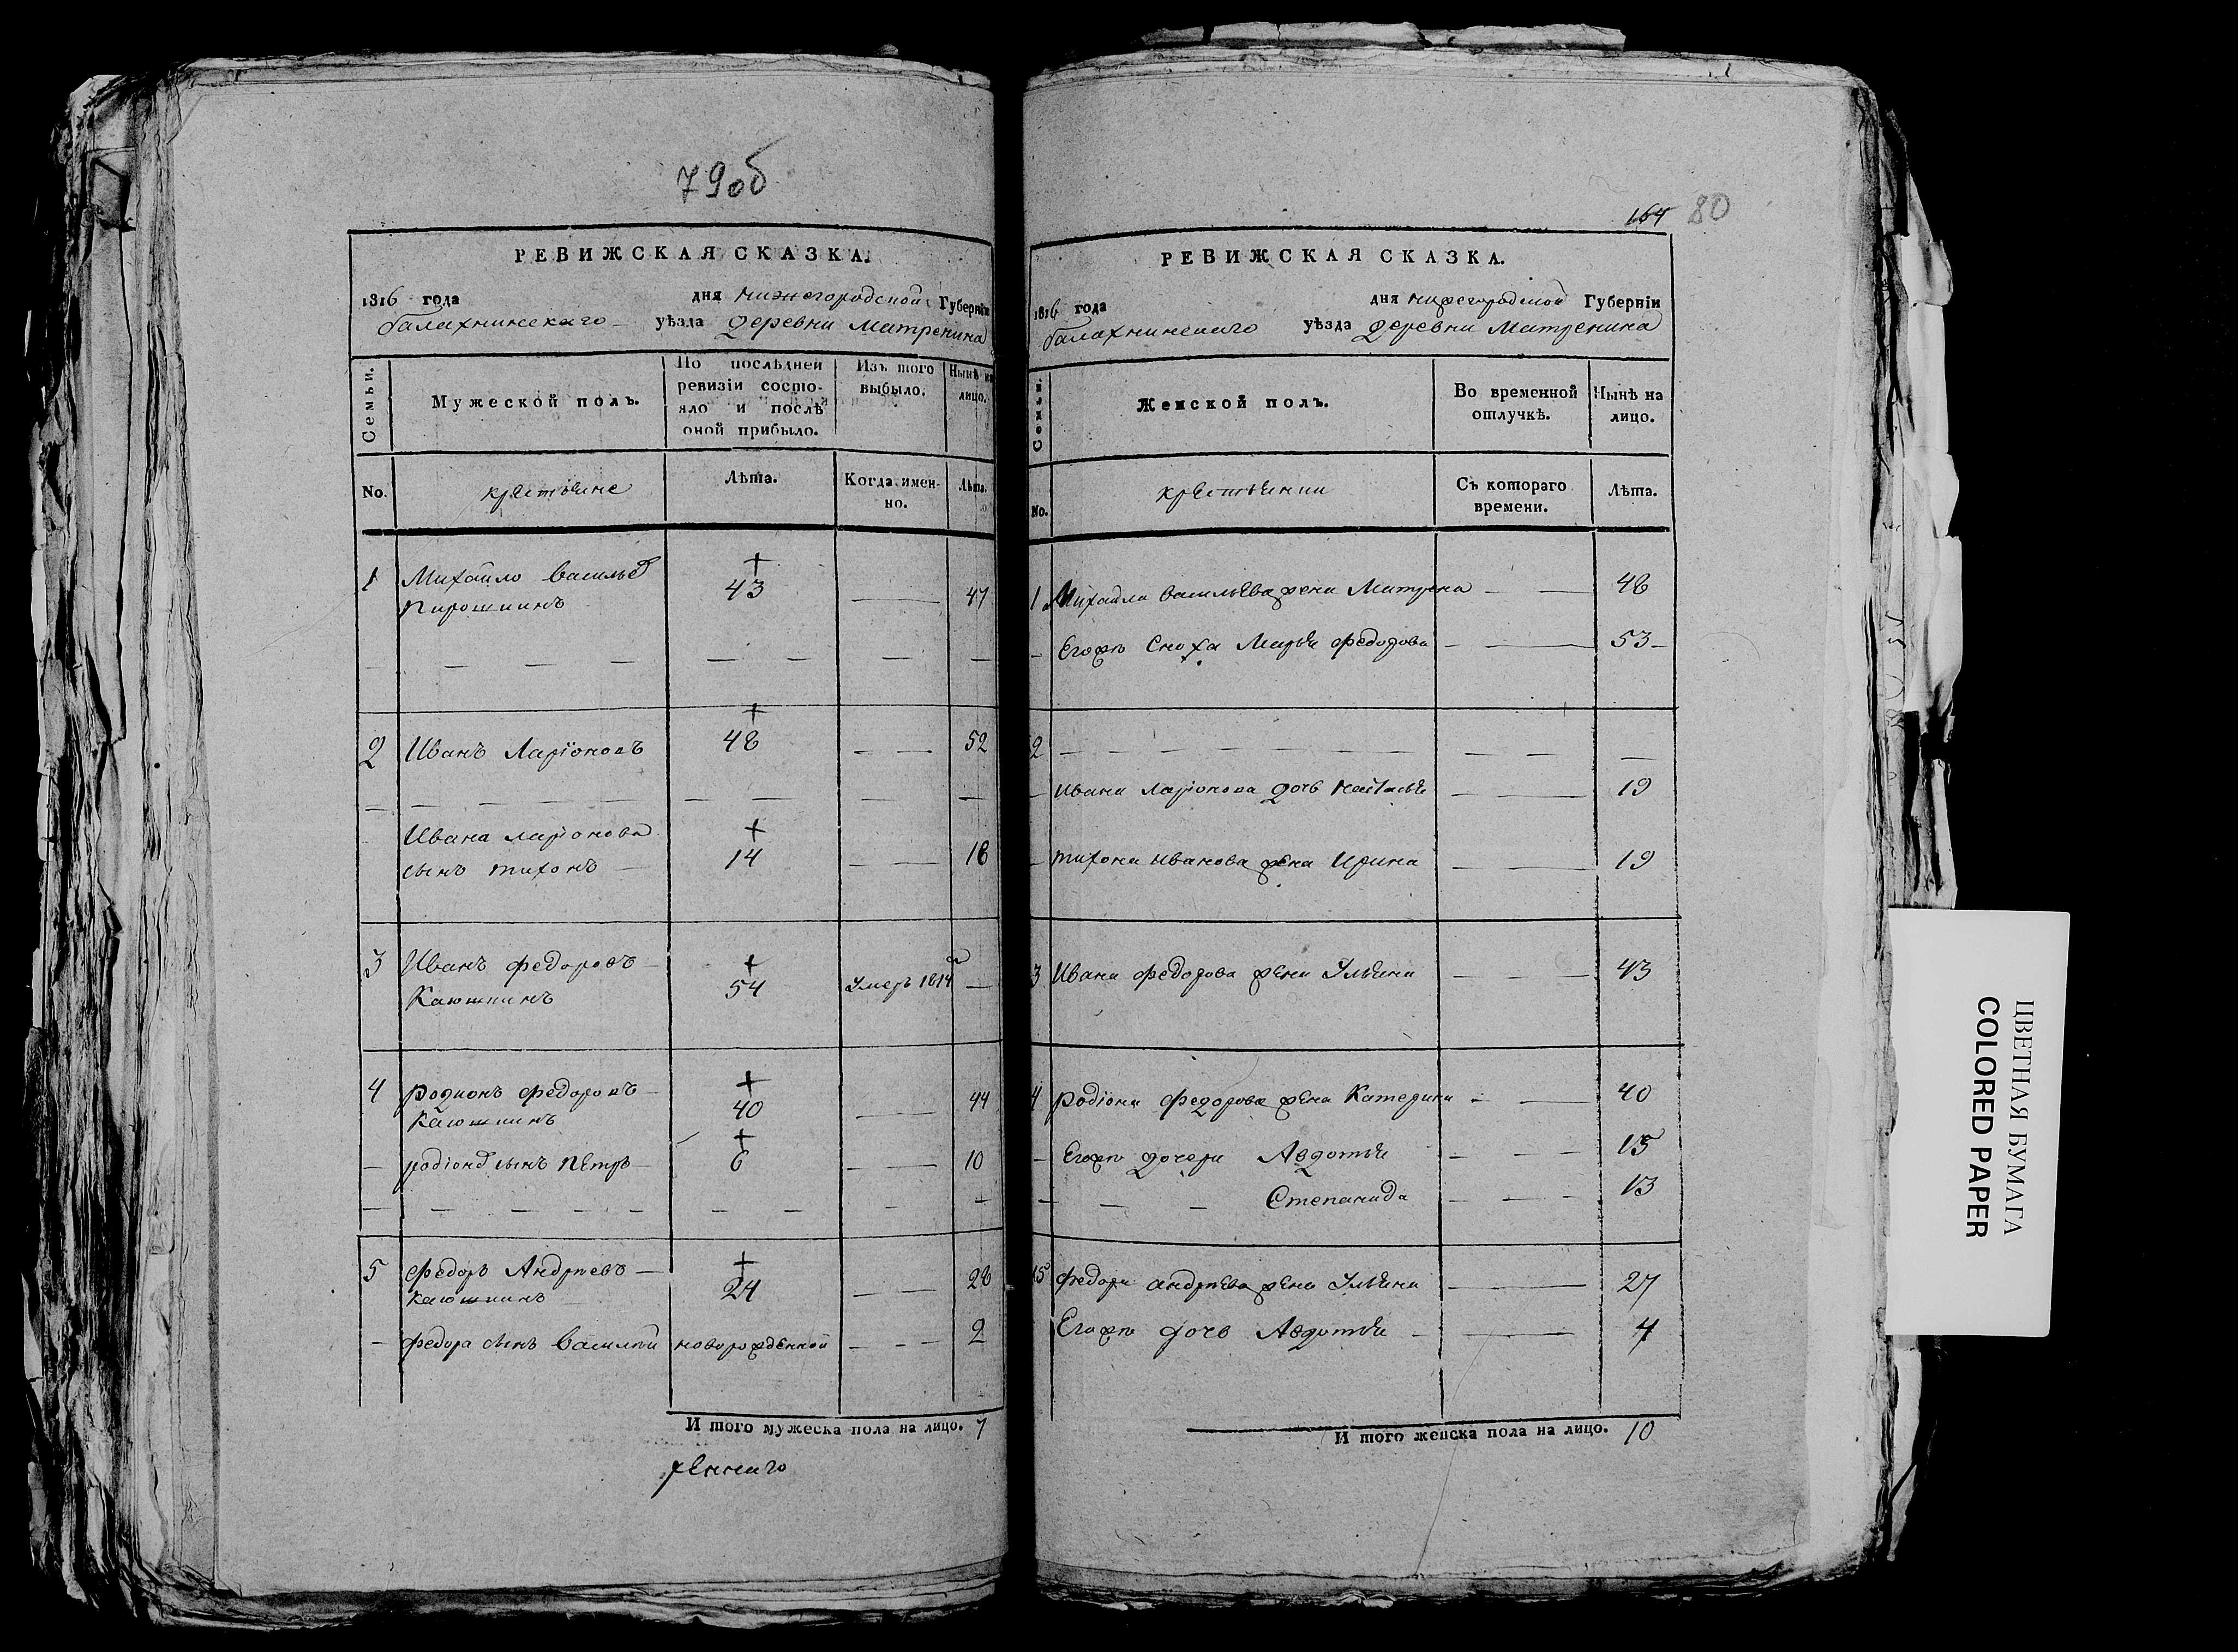 79об
РЕВИЖСКАЯ СКАЗКА.
1816 года дня нижегородской Губерніи
балахнинскаго уѣзда деревни Матренина
Семьи.
Мужеской полъ.
По послѣдней ревизіи состояло и послѣ оной прибыло.
Изъ того выбыло.
Нынѣ на лицо.
No.
крестьяне
Лѣта.
Когда имен-
но.
Лѣта.
1 Михайло васильев 43 47
Пирошкинъ
2 Иванъ Ларіоновъ 48 52
Ивана ларіонова
сынъ тихонъ 14 18
3 Иванъ федоровъ 54 Умеръ 1814
Каюшкинъ
4 родионъ федоровъ 40 44
Каюшкинъ
родіонов сынъ Петръ 6 10
5 федоръ Андреевъ 24 28
Каюшкинъ
федора сынъ василей новорожденной 2
И того мужеска пола на лицо. 7
164 80
РЕВИЖСКАЯ СКАЗКА.
1816 года дня нижегородской Губерніи
балахнинскаго уѣзда деревни Матренина
Семьи.
Женской полъ.
Во временной
отлучкѣ.
Нынѣ на
лицо.
No.
крестьянки
Съ котораго
времени.
Лѣта.
1 Михайла васильева жена Матрена 48
Егожъ сноха Марья федорова 53
2
ивана ларіонова дочь настасья 19
тихона иванова жена Ирина 19
3 Ивана федорова жена Ульяна 43
4 родіона федорова жена Катерина 40
Егожъ дочери Авдотья 15
Степанида 13
5 федора андреева жена Ульяна 27
Егожъ дочь Авдотья 4
И того женска пола на лицо. 10
ЦВЕТНАЯ БУМАГА
COLORED PAPER